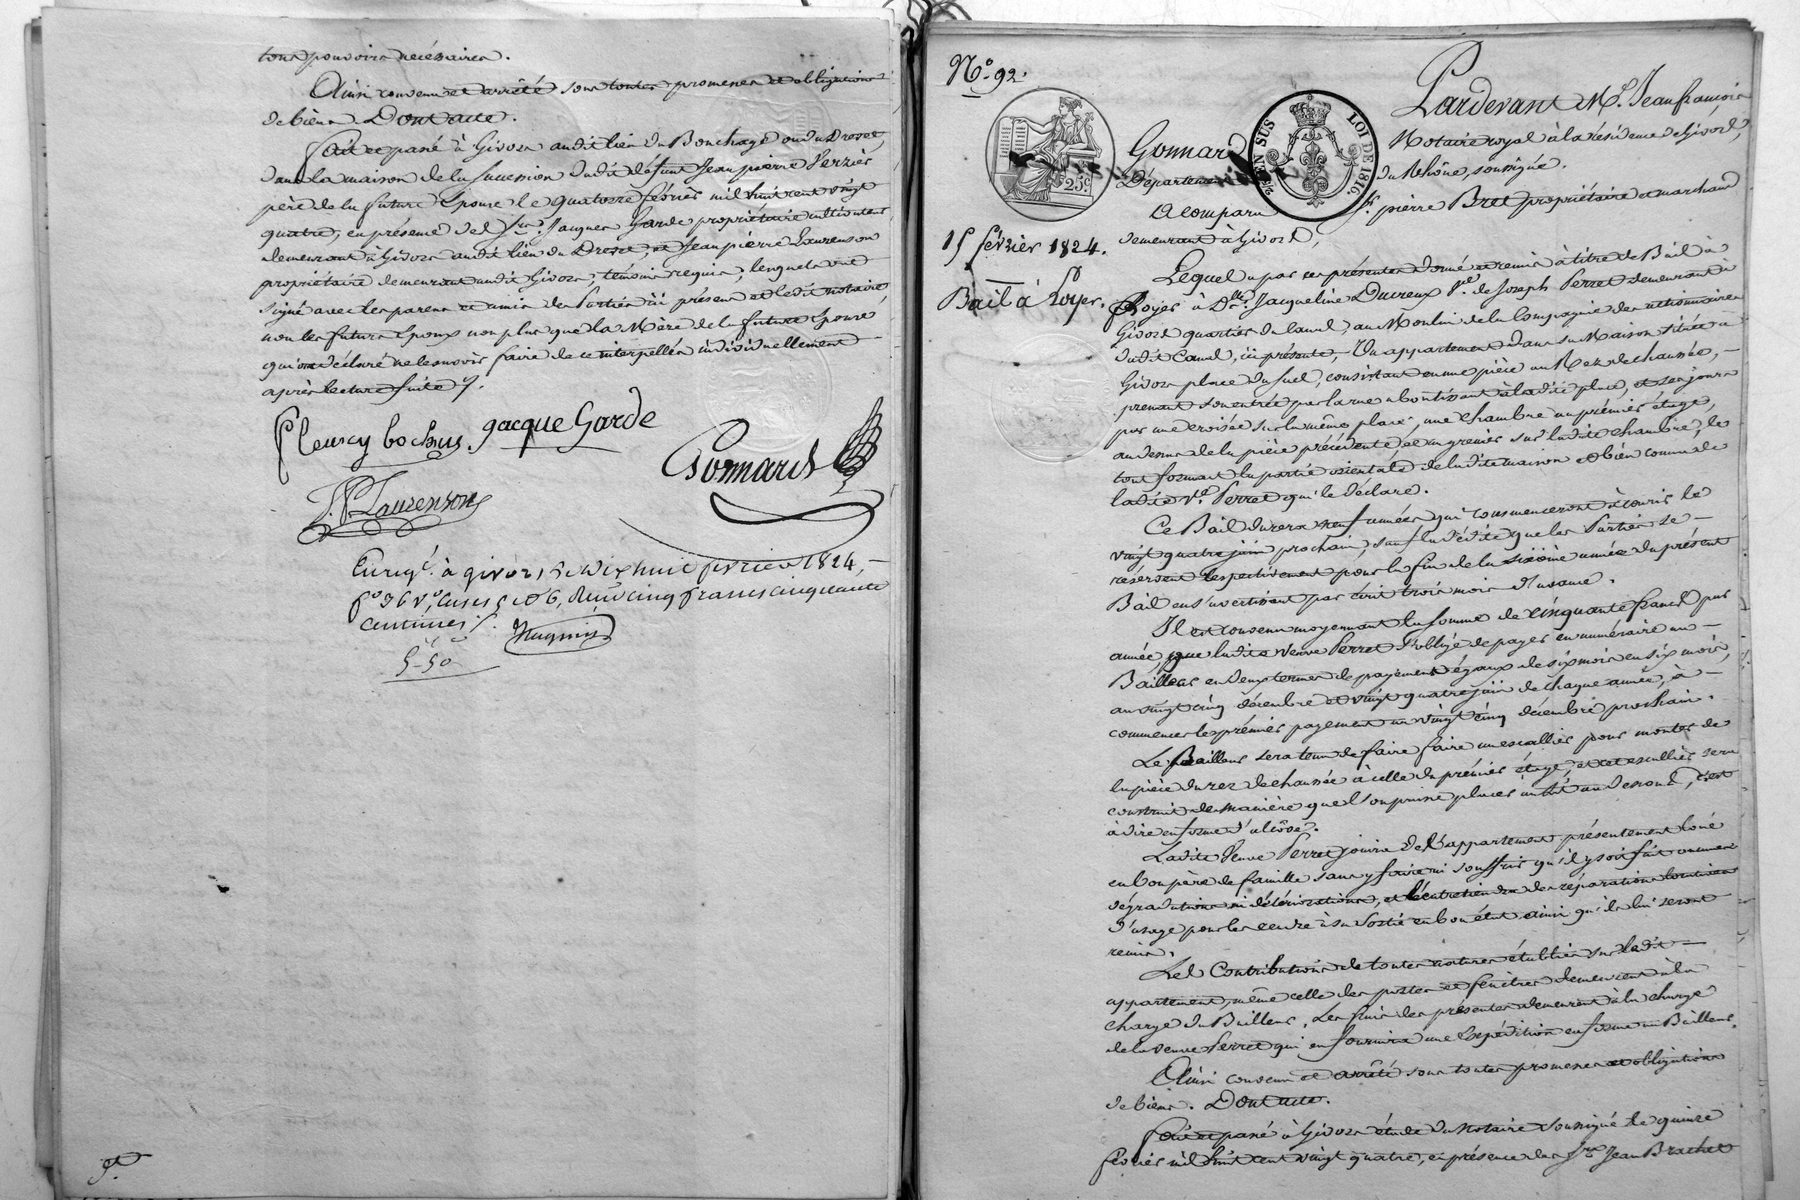 tous pouvoirs nécéssaires.
Ainsi convenu et arrêté sous toutes promesses et obligations
de biens. Dont acte.
Fait et passé à Givors audit lieu du Bouchage ou du Drevet,
dans la maison de la succession dudit défunt Jean pierre Verzier
père de la future Epouse le quatorze février mil huit cent vingt
quatre, en présence des Srs. Jacques Garde propriétaire cultivateur
demeurant à Givors audit lieu du Drevet, et Jean pierre Laurenson
propriétaire demeurant audit Givors, témoins requis, lesquels ont
signé avec les parens et amis des Parties ici présens et ledit notaire,
non les futurs Epoux non plus que la Mère de la future Epouse
qui ont déclaré ne le savoir faire de ce interpellés individuellement
après lecture faite.
fleury bochus gacque Garde
Gonnard
J. P. Laurenson
Enregt. à givors, le dix huit fevrier 1824,
fo. 36 vo, cases 5 et 6, Reçu cinq francs cinquante
centimes.
5-50
No. 92.
Pardevant Me. Jean françois
Gonnard Notaire royal à la résidence de Givors,
Département du Rhône, soussigné.
A comparu Sr. pierre Bret propriétaire et marchand
demeurant à Givors,
EN SUS LOI DE 1816.
25c
15 février 1824.
Bail à Loyer.
Lequel a par ces présentes donné et remis à titre de Bail à
Loyer à De. Jacqueline Ducreux Ve. de Joseph Perret demeurant à
Givors quartier du Canal, au Moulin de la Compagnie des actionnaires
dudit Canal, ici présente, Un appartement dans sa Maison située à
Givors place du Suel, consistant en une pièce au Rez de chaussée,
prenant son entrée par la rue aboutissant à ladite place, et ses jours
par une croisée sur la même place, une chambre au prémier étage,
au dessus de la pièce précédente, et un grenier sur ladite chambre, le
tout formant la partie orientale de ladite maison et bien connu de
ladite Ve. Perret qui le déclare.
Ce Bail durera neuf années qui commenceront à courir le
vingt quatre juin prochain, sauf la dédite que les Parties se
réservent respectivement pour la fin de la sixième année du présent
Bail en s'avertissant par écrit trois mois d'avance.
Il est convenu moyennant la somme de cinquante francs par
année, que ladite veuve Perret s'oblige de payer en numéraire au
Bailleur en deux termes de payement égaux de six mois en six mois,
au vingt cinq décembre et vingt quatre juin de chaque année, à
commencer le prémier payement au vingt cinq décembre prochain.
Le Bailleur sera tenu de faire faire un escallier pour monter de
la pièce du rez de chaussée à celle du prémier étage, et cet escallier sera
construit de manière que l'on puisse placer un lit au dessous, c'est
à dire en forme d'alcôve.
Ladite Veuve Perret jouira de l'appartement présentement loué
en bon père de famille sans y faire ni souffrir qu'il y soit fait aucunes
dégradations ni détériorations, et l'entretiendra des réparations locatives
d'usage pour les rendre à sa sortie en bon état ainsi qu'ils lui seront
remis.
Les Contributions de toutes natures établies sur ledit
appartement, même celle des portes et fenêtres demeurent à la
charge du Bailleur. Les frais des présentes demeurent à la charge
de la veuve Perret qui en fournira une Expédition en forme au Bailleur.
Ainsi convenu et arrêté sous toutes promesses et obligations
de biens. Dont acte.
Fait et passé à Givors étude du Notaire soussigné le quinze
février mil huit cent vingt quatre, en présence des Srs. Jean Brachet